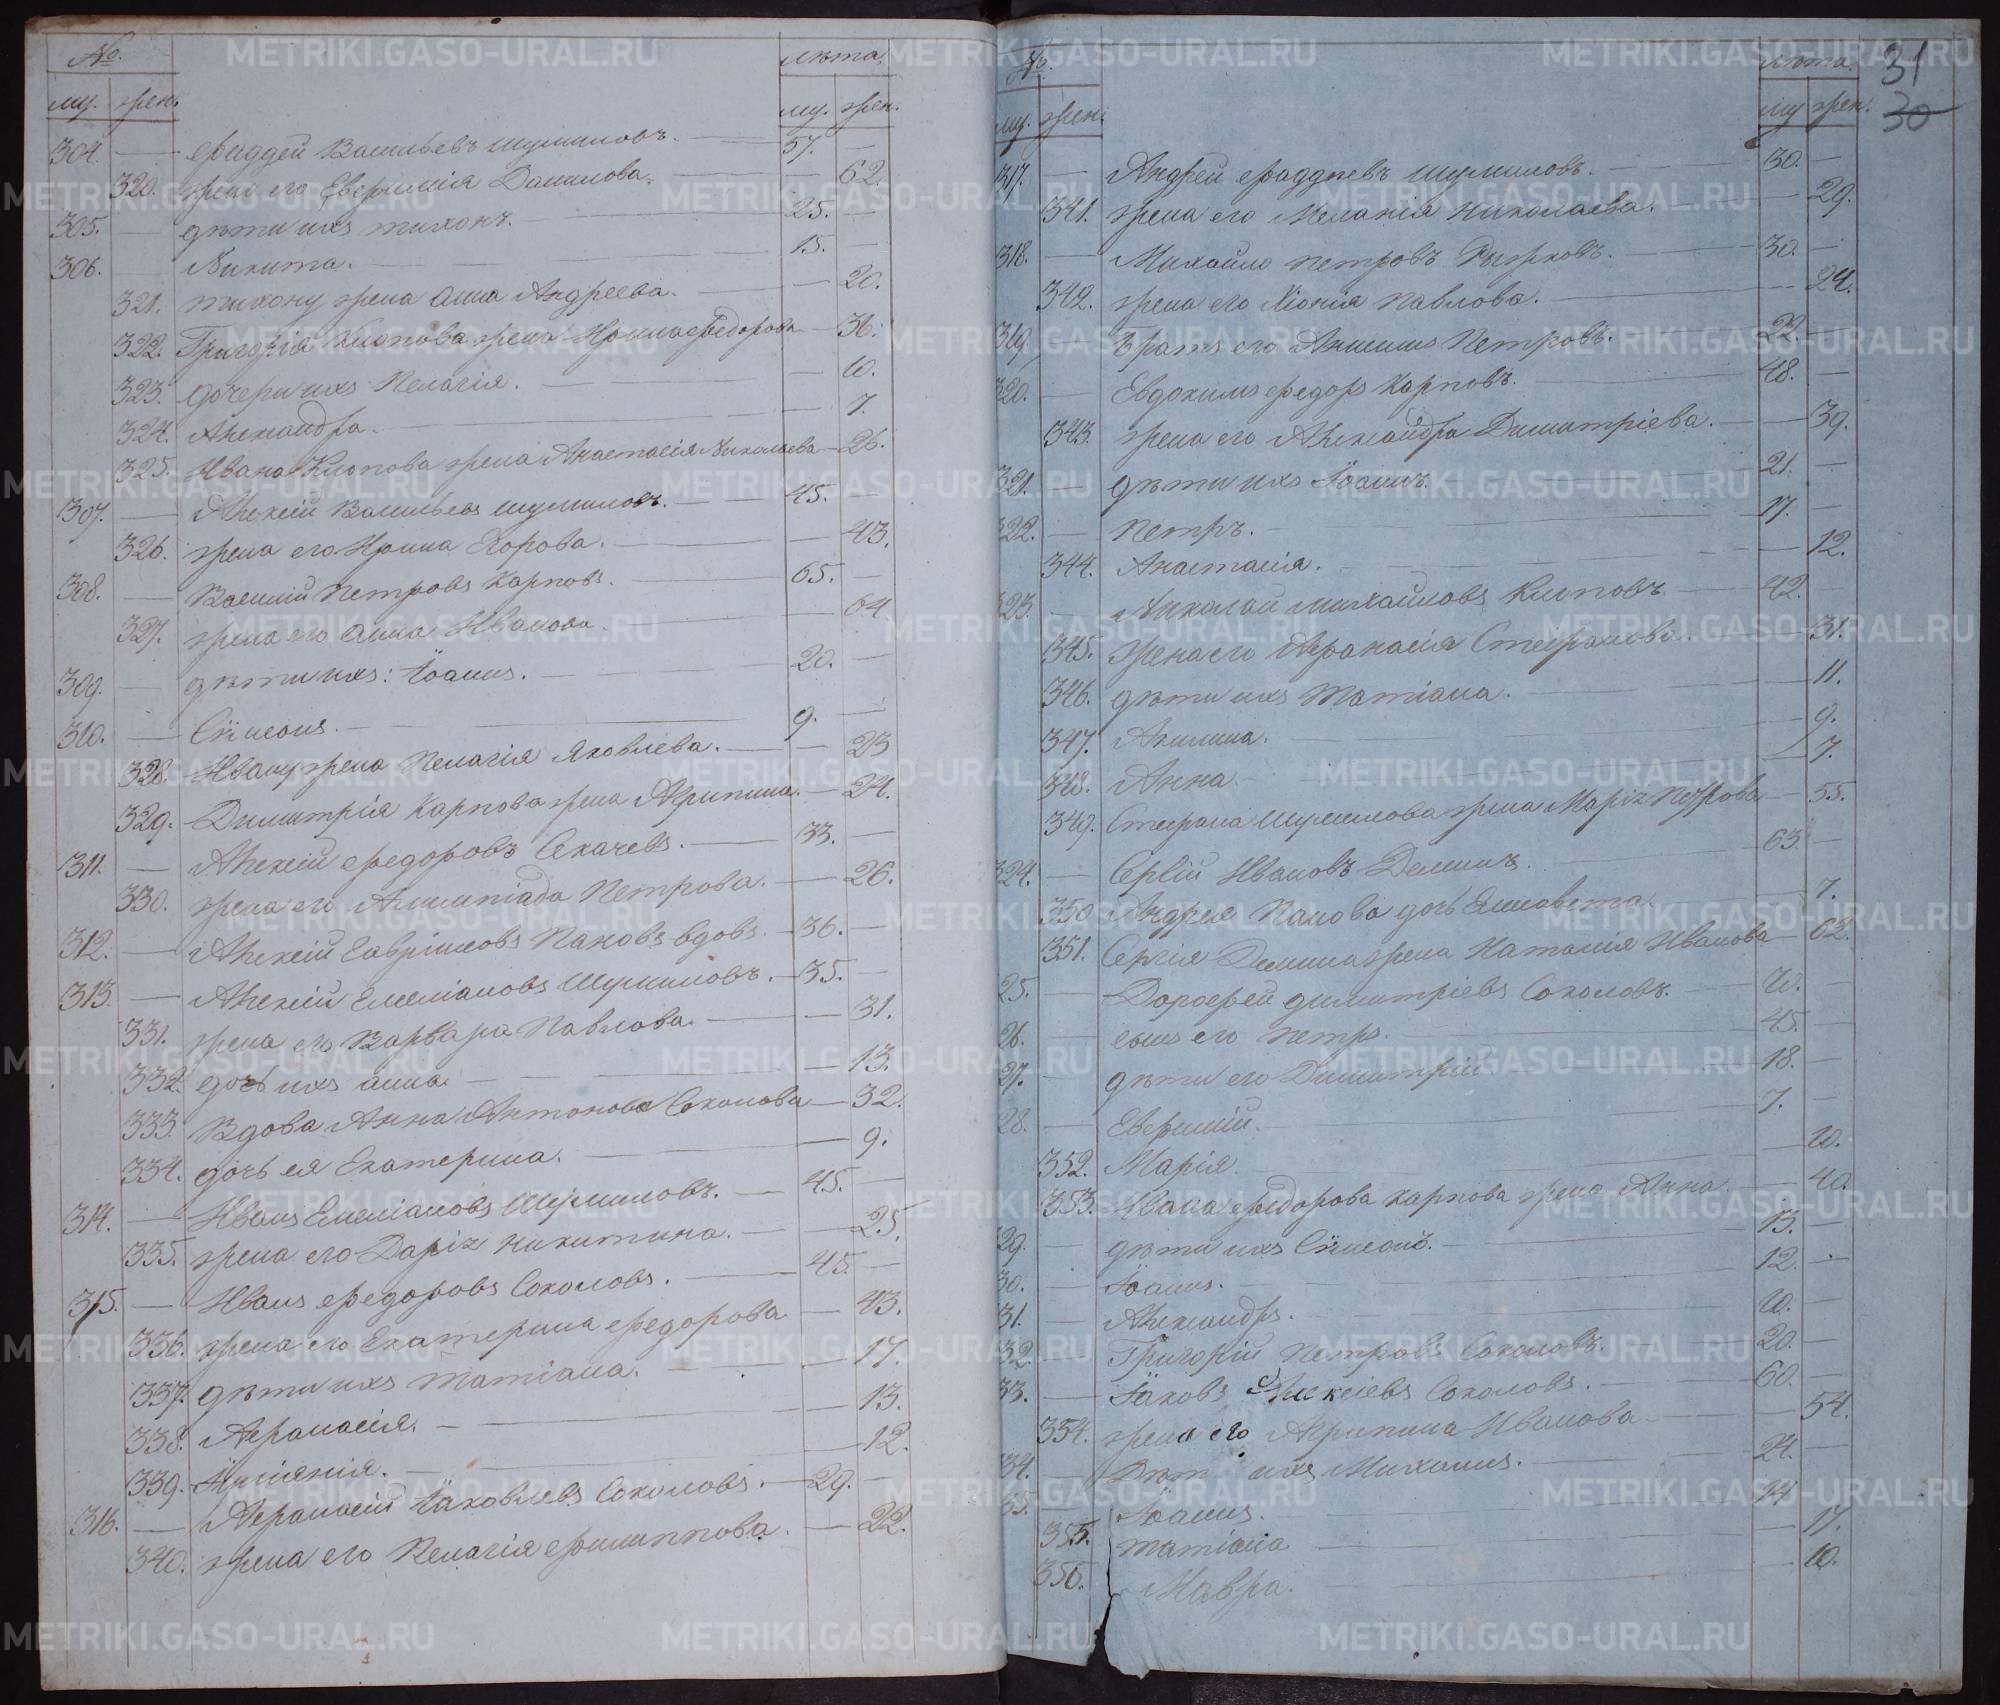 №. лѣта.
му. жен. му. жен.
304. Фаддей Васильевъ Шумиловъ. 57.
320. жена его Евфимія Данилова. 62.
305. дѣти ихъ Тихонъ. 25.
306. Никита. 15.
321. Тихону жена Анна Андреева. 20.
322. Григорія Клопова жена Ирина Федорова 36.
323. дочери ихъ Пелагія. 10.
324. Александра. 7.
325. Ивана Клопова жена Анастасія Николаева 26.
307. Алексій Васильевъ Шумиловъ. 45.
326. жена его Ирина Егорова. 43.
308. Василій Петровъ Карповъ. 65.
327. жена его Анна Иванова. 64
309. дѣти ихъ: Іоаннъ. 20.
310. Сѵмеонъ. 9.
328. Ивану жена Пелагія Яковлева. 23
329. Димитрія Карпова жена Агрипина. 24.
311. Алексій Федоровъ Секачевъ. 33.
330. жена его Алимпіада Петрова. 26.
312. Алексій Гавріиловъ Пановъ вдовъ. 36.
313. Алексій Емеліановъ Шумиловъ. 35.
331. жена его Варвара Павлова. 31.
332. дочь ихъ Анна. 13.
333. Вдова Анна Антонова Соколова 32.
334. дочь ея Екатерина. 9.
314. Иванъ Емеліановъ Шумиловъ. 45.
335. жена его Дарія Никитина. 25.
315. Иванъ Федоровъ Соколовъ. 45.
336. жена его Екатерина Федорова 43.
337. дѣти ихъ Татіана. 17.
338. Афанасія. 13.
339. Іуліянія. 12.
316. Афанасій Іаковлевъ Соколовъ. 29.
340. жена его Пелагія Филиппова. 22.
№. лѣта. 31
му. жен. му жен. 30
317. Андрей Фаддѣевъ Шумиловъ. 30.
341. жена его Меланія Николаева. 29.
318. Михайло Петровъ Рыжковъ. 30.
342. жена его Хіонія Павлова. 24.
319. Братъ его Анисимъ Петровъ. 22.
320. Евдокимъ Федоръ Карповъ. 48.
343. жена его Александра Димитріева. 39.
321. дѣти ихъ Іоаннъ. 21.
322. Петръ. 17.
344. Анастасія. 12.
323. Николай Михайловъ Клоповъ 42.
345. жена его Афанасія Стефанова. 31.
346. дѣти ихъ Татіана. 11.
347. Акилина. 9.
348. Анна 7.
349. Стефана Шумилова жена Марія Петрова 55.
324. Сергій Ивановъ Деминъ. 63.
350 Андрея Панова дочь Елисавета. 7.
351. Сергія Демина жена Наталія Иванова 62.
25. Дорофей Димитріевъ Соколовъ. 70.
26. сынъ его Петръ. 45.
27. дѣти его Димитрій 18.
28. Евфимій. 7.
352. Марія. 10.
353. Ивана Федорова Карпова жена Анна 40
29. дѣти ихъ Сѵмеонъ. 13.
30. Іоаннъ. 12.
31. Александръ. 10.
32 Григорій Петровъ Соколовъ. 20.
33. Іаковъ Алексіевъ Соколовъ. 60.
354. жена его Агрипина Иванова 54.
34. Дѣт ихъ Михаилъ. 24.
35. Іоаннъ. 14
355. Татіана 17.
356. Мавра. 10.
METRIKI.GASO-URAL.RU